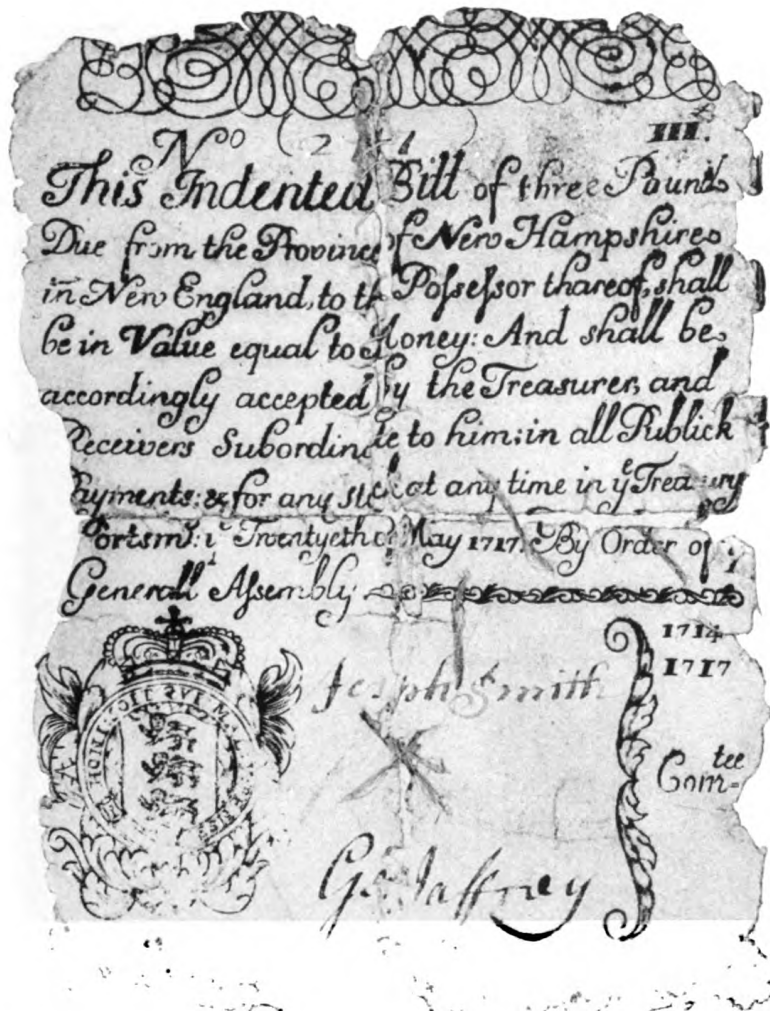 No (2 4)
III.
This Indented Bill of three Pounds
Due from the Province of New Hampshire
in New England, to the Poſseſsor thareof, shall
be in Value equal to Money: And shall be
accordingly accepted by the Treasurer, and
Receivers Subordinate to him: in all Publick
Payments: & for any Stock at any time in yͤ Treasury
Portsmͦ: yͤ Twentyeth of May 1717. By Order of yͤ
Generall Aſsembly
1714
1717
Joseph Smith
HONI SOIT QUI MAL Y PENSE
Com=tee
Go Jaffrey